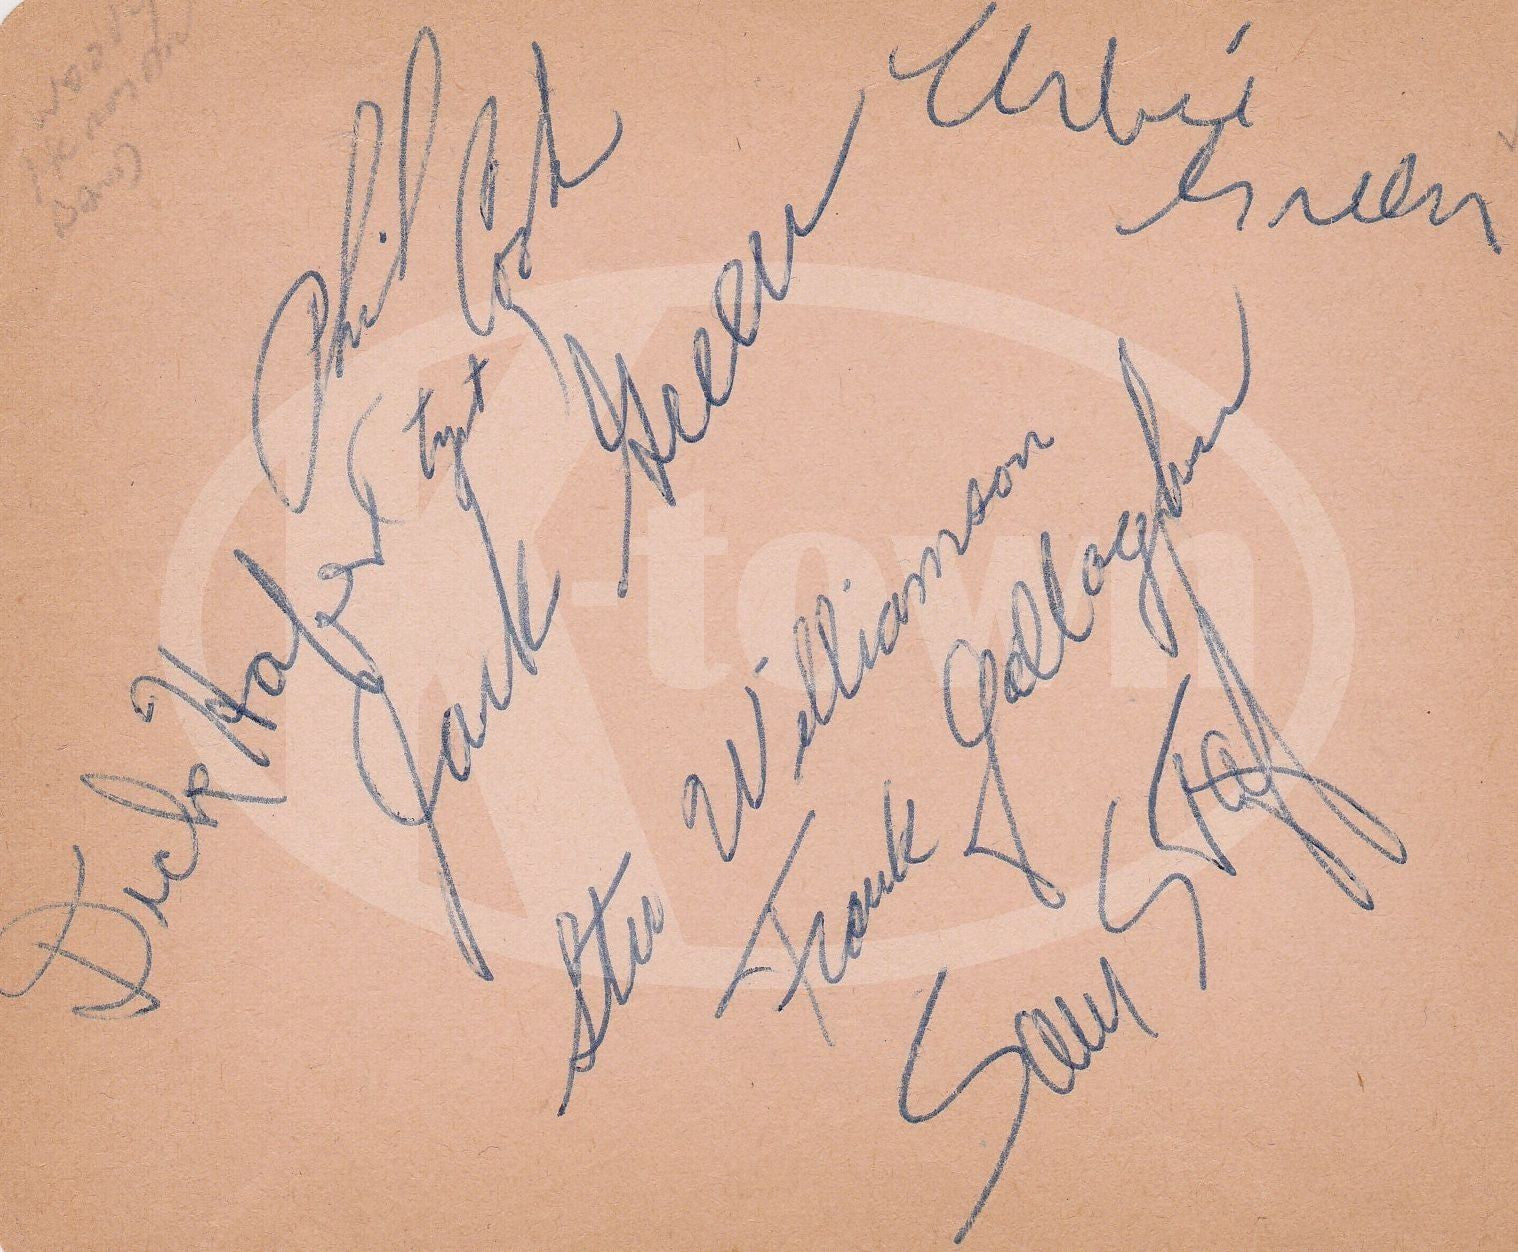 Woody
Herman
Band
Urbie
Green
Phil Cook
Tpt
Dick Hafer
Jack Green
Stu Williamson
Frank Gallagher
Sam Staff
K-town